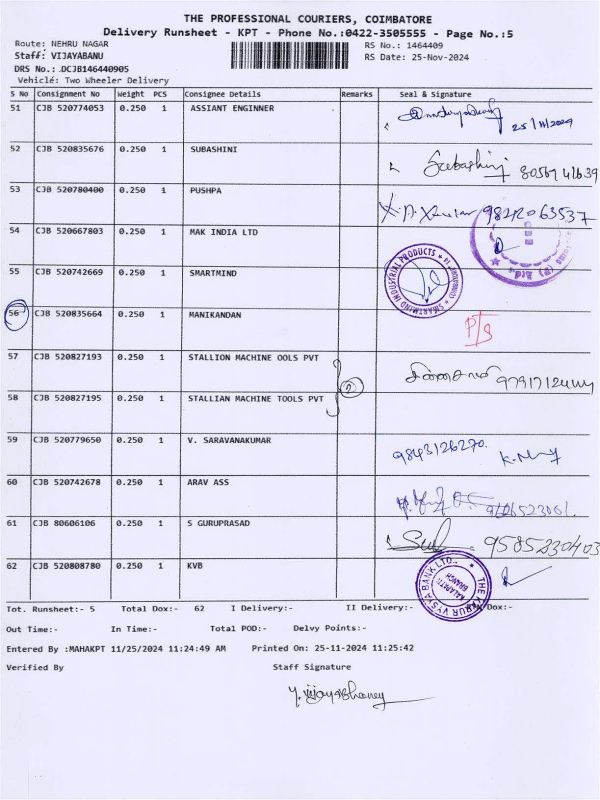 THE PROFESSIONAL COURIERS, COIMBATORE
Delivery Runsheet - KPT - Phone No.:0422-3505555 - Page No.:5
Route: NEHRU NAGAR RS No.: 1464409
Staff: VIJAYABANU RS Date: 25-Nov-2024
DRS No.: DCJB146440905
Vehicle: Two Wheeler Delivery
S No Consignment No Weight PCS Consignee Details Remarks Seal & Signature
51 CJB 520774053 0.250 1 ASSIANT ENGINNER 25/11/2024
52 CJB 520835676 0.250 1 SUBASHINI Subashini
53 CJB 520780400 0.250 1 PUSHPA 98420 63537
54 CJB 520667803 0.250 1 MAK INDIA LTD
55 CJB 520742669 0.250 1 SMARTMIND SMARTMIND INDUSTRIAL PRODUCTS
56 CJB 520835664 0.250 1 MANIKANDAN P/S
57 CJB 520827193 0.250 1 STALLION MACHINE OOLS PVT
2
58 CJB 520827195 0.250 1 STALLIAN MACHINE TOOLS PVT
59 CJB 520779650 0.250 1 V. SARAVANAKUMAR 9843126270
60 CJB 520742678 0.250 1 ARAV ASS
61 CJB 80606106 0.250 1 S GURUPRASAD 9585230403
62 CJB 520808780 0.250 1 KVB THE KARUR VYSYA BANK LTD., KALAPATTI BRANCH
Tot. Runsheet:- 5 Total Dox:- 62 I Delivery:- II Delivery:- Dox:-
Out Time:- In Time:- Total POD:- Delvy Points:-
Entered By :MAHAKPT 11/25/2024 11:24:49 AM Printed On: 25-11-2024 11:25:42
Verified By Staff Signature